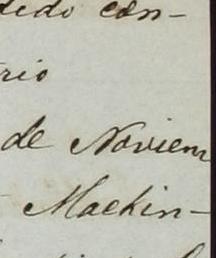 dido con-
rio
de Noviem
Mackin-